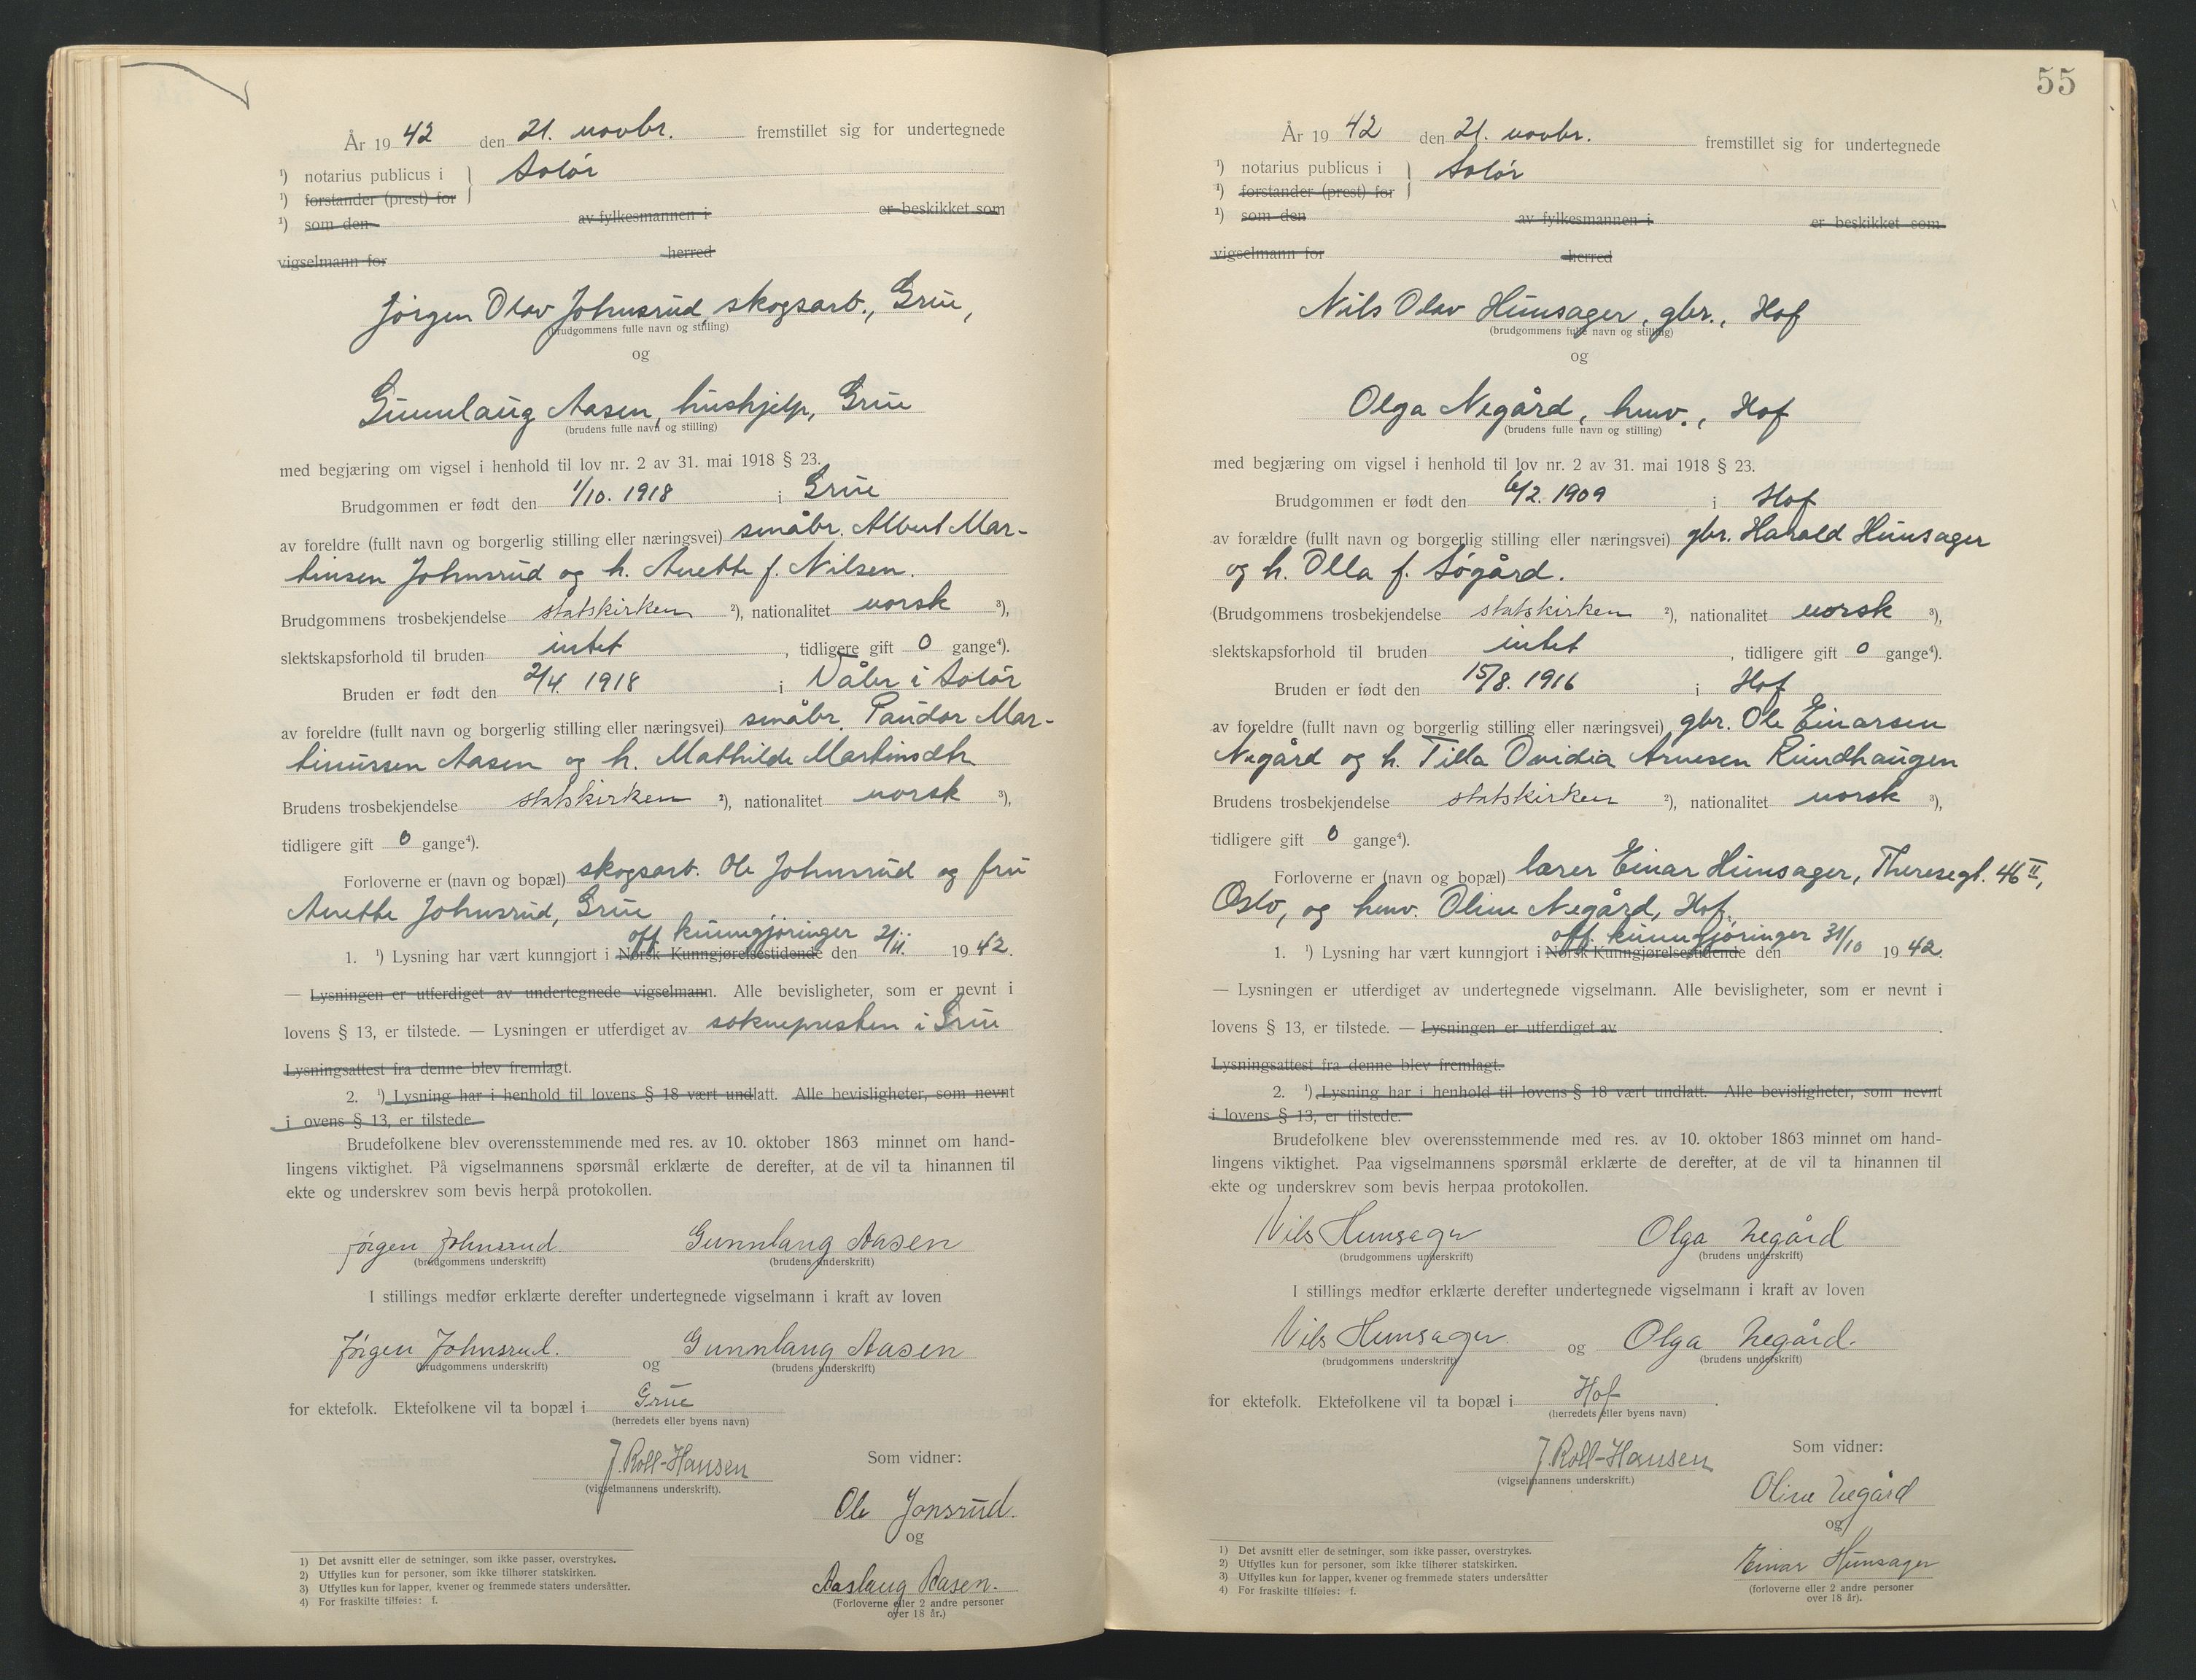 År 1942 den 21. novbr. fremstillet sig for undertegnede
¹) notarius publicus i } Solør
¹) forstander (prest) for
¹) som den av fylkesmannen i er beskikket som
vigselmann for herred
Jørgen Olav Johnsrud, skogsarb., Grue,
(brudgommens fulle navn og stilling)
og
Gunnlaug Aasen, hushjelp, Grue
(brudens fulle navn og stilling)
med begjæring om vigsel i henhold til lov nr. 2 av 31. mai 1918 § 23.
Brudgommen er født den 1/10. 1918 i Grue
av foreldre (fullt navn og borgerlig stilling eller næringsvei) småbr. Albert Mar-
tinsen Johnsrud og h. Anette f. Nilsen.
Brudgommens trosbekjendelse statskirken ²), nationalitet norsk ³),
slektskapsforhold til bruden intet, tidligere gift 0 gange⁴).
Bruden er født den 2/4. 1918 i Våler i Solør
av foreldre (fullt navn og borgerlig stilling eller næringsvei) småbr. Paudor Mar-
tinussen Aasen og h. Mathilde Martinsdtr
Brudens trosbekjendelse statskirken ²), nationalitet norsk ³),
tidligere gift 0 gange⁴).
Forloverne er (navn og bopæl) skogsarb. Ole Johnsrud og fru
Anette Johnsrud, Grue
off. kunngjøringer
1. ¹) Lysning har vært kunngjort i Norsk Kunngjørelsestidende den 2/11. 1942.
— Lysningen er utferdiget av undertegnede vigselmann. Alle bevisligheter, som er nevnt i
lovens § 13, er tilstede. — Lysningen er utferdiget av soknepresten i Grue
Lysningsattest fra denne blev fremlagt.
2. ¹) Lysning har i henhold til lovens § 18 vært undlatt. Alle bevisligheter, som nevnt
i ovens § 13, er tilstede.
Brudefolkene blev overensstemmende med res. av 10. oktober 1863 minnet om hand-
lingens viktighet. På vigselmannens spørsmål erklærte de derefter, at de vil ta hinannen til
ekte og underskrev som bevis herpå protokollen.
Jørgen Johnsrud. Gunnlaug Aasen
(brudgommens underskrift) (brudens underskrift)
I stillings medfør erklærte derefter undertegnede vigselmann i kraft av loven
Jørgen Johnsrud. og Gunnlaug Aasen
(brudgommens underskrift) (brudens underskrift)
for ektefolk. Ektefolkene vil ta bopæl i Grue
(herredets eller byens navn)
J. Roll-Hansen
(vigselmannens underskrift).
Som vidner:
Ole Jonsrud.
og
Aaslaug Aasen.
(Forloverne eller 2 andre personer
over 18 år.)
1) Det avsnitt eller de setninger, som ikke passer, overstrykes.
2) Utfylles kun for personer, som ikke tilhører statskirken.
3) Utfylles kun for lapper, kvener og fremmede staters undersåtter.
4) For fraskilte tilføies: f.
55
År 1942 den 21. novbr. fremstillet sig for undertegnede
¹) notarius publicus i } Solør
¹) forstander (prest) for
¹) som den av fylkesmannen i er beskikket som
vigselmann for herred
Nils Olav Hunsager, gbr., Hof
(brudgommens fulle navn og stilling)
og
Olga Negård, hmv., Hof
(brudens fulle navn og stilling)
med begjæring om vigsel i henhold til lov nr. 2 av 31. mai 1918 § 23.
Brudgommen er født den 6/2. 1909 i Hof
av forældre (fullt navn og borgerlig stilling eller næringsvei) gbr. Harald Hunsager
og h. Olla f. Søgård.
(Brudgommens trosbekjendelse statskirken ²), nationalitet norsk ³),
slektskapsforhold til bruden intet, tidligere gift 0 gange⁴).
Bruden er født den 15/8. 1916 i Hof
av foreldre (fullt navn og borgerlig stilling eller næringsvei) gbr. Ole Einarsen
Negård og h. Tilla Ovidia Arnesen Rundhaugen
Brudens trosbekjendelse statskirken ²), nationalitet norsk ³),
tidligere gift 0 gange⁴).
Forloverne er (navn og bopæl) lærer Einar Hunsager, Theresegt. 46 II,
Oslo, og hmv. Oline Negård, Hof.
off. kunngjøringer
1. ¹) Lysning har vært kunngjort i Norsk Kunngjørelsestidende den 31/10 1942.
— Lysningen er utferdiget av undertegnede vigselmann. Alle bevisligheter, som er nevnt i
lovens § 13, er tilstede. — Lysningen er utferdiget av .
Lysningsattest fra denne blev fremlagt.
2. ¹) Lysning har i henhold til lovens § 18 vært undlatt. Alle bevisligheter, som nevnt
i lovens § 13, er tilstede.
Brudefolkene blev overensstemmende med res. av 10. oktober 1863 minnet om hand-
lingens viktighet. Paa vigselmannens spørsmål erklærte de derefter, at de vil ta hinannen til
ekte og underskrev som bevis herpaa protokollen.
Nils Hunsager Olga Negård
(brudgommens underskrift) (brudens underskrift)
I stillings medfør erklærte derefter undertegnede vigselmann i kraft av loven
Nils Hunsager. og Olga Negård.
(brudgommens underskrift) (brudens underskrift)
for ektefolk. Ektefolkene vil ta bopæl i Hof.
(herredets eller byens navn)
J. Roll-Hansen
(vigselmannens underskrift.)
Som vidner:
Oline Negård
og
Einar Hunsager
(forloverne eller 2 andre personer
over 18 år).
1) Det avsnitt eller de setninger, som ikke passer, overstrykes.
2) Utfylles kun for personer, som ikke tilhører statskirken.
3) Utfylles kun for lapper, kvener og fremmede staters undersåtter
4) For fraskilte tilføies: f.